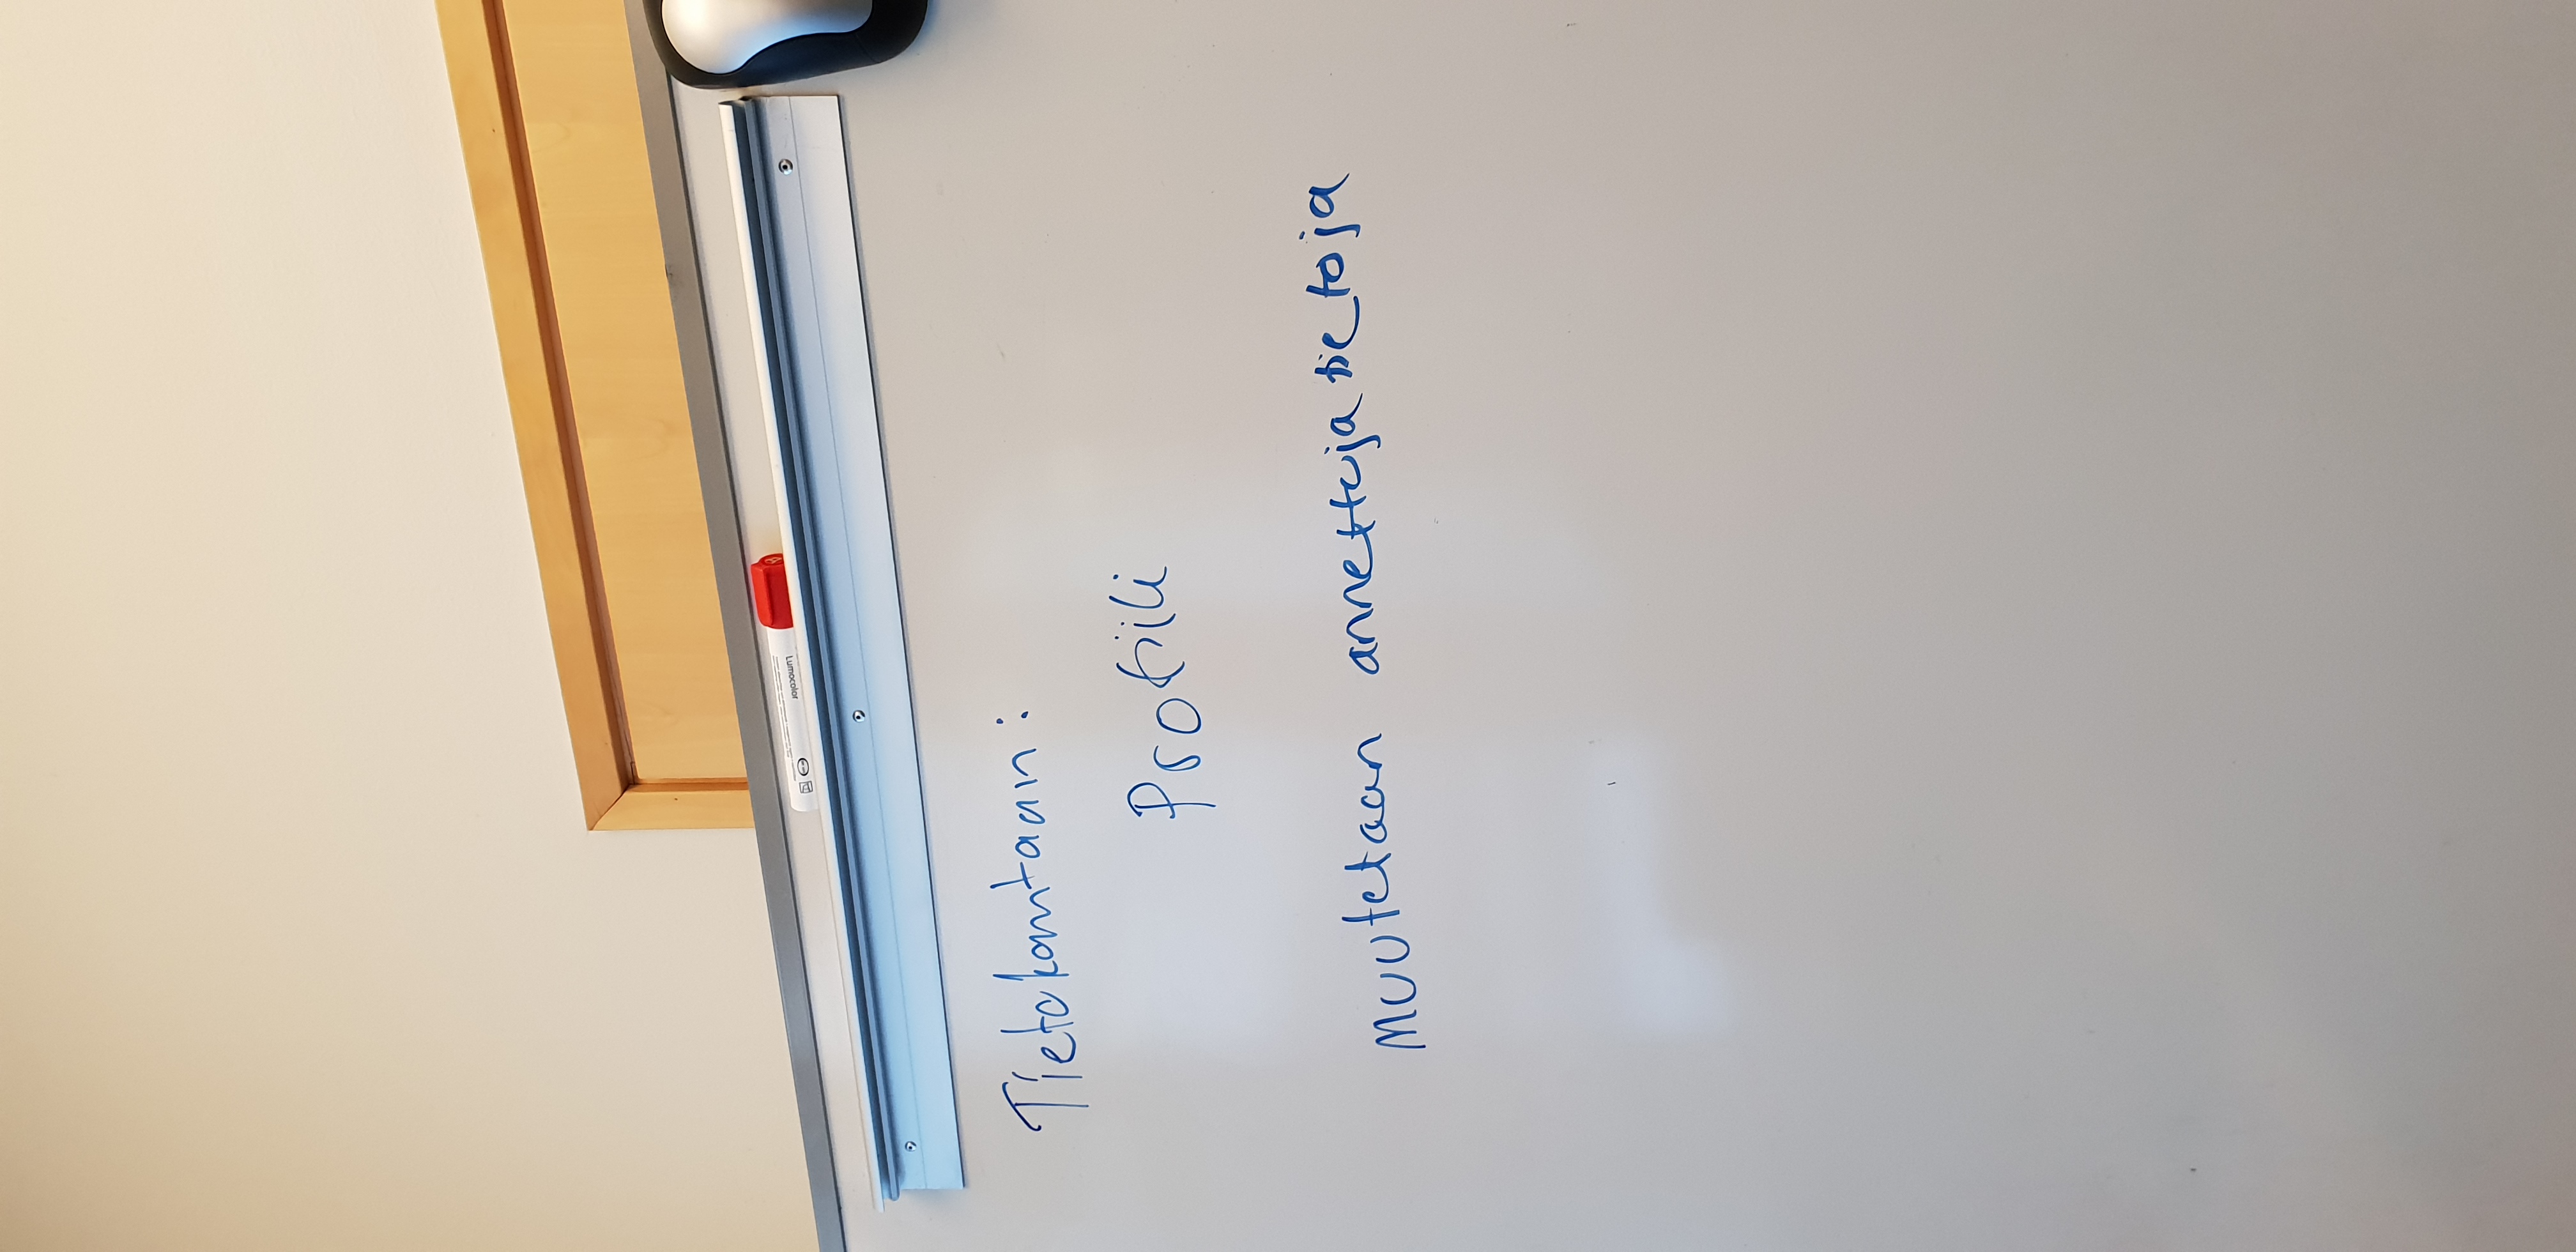 Lumocolor
Tietokantaan:
Profiili
Muutetaan annettuja tietoja